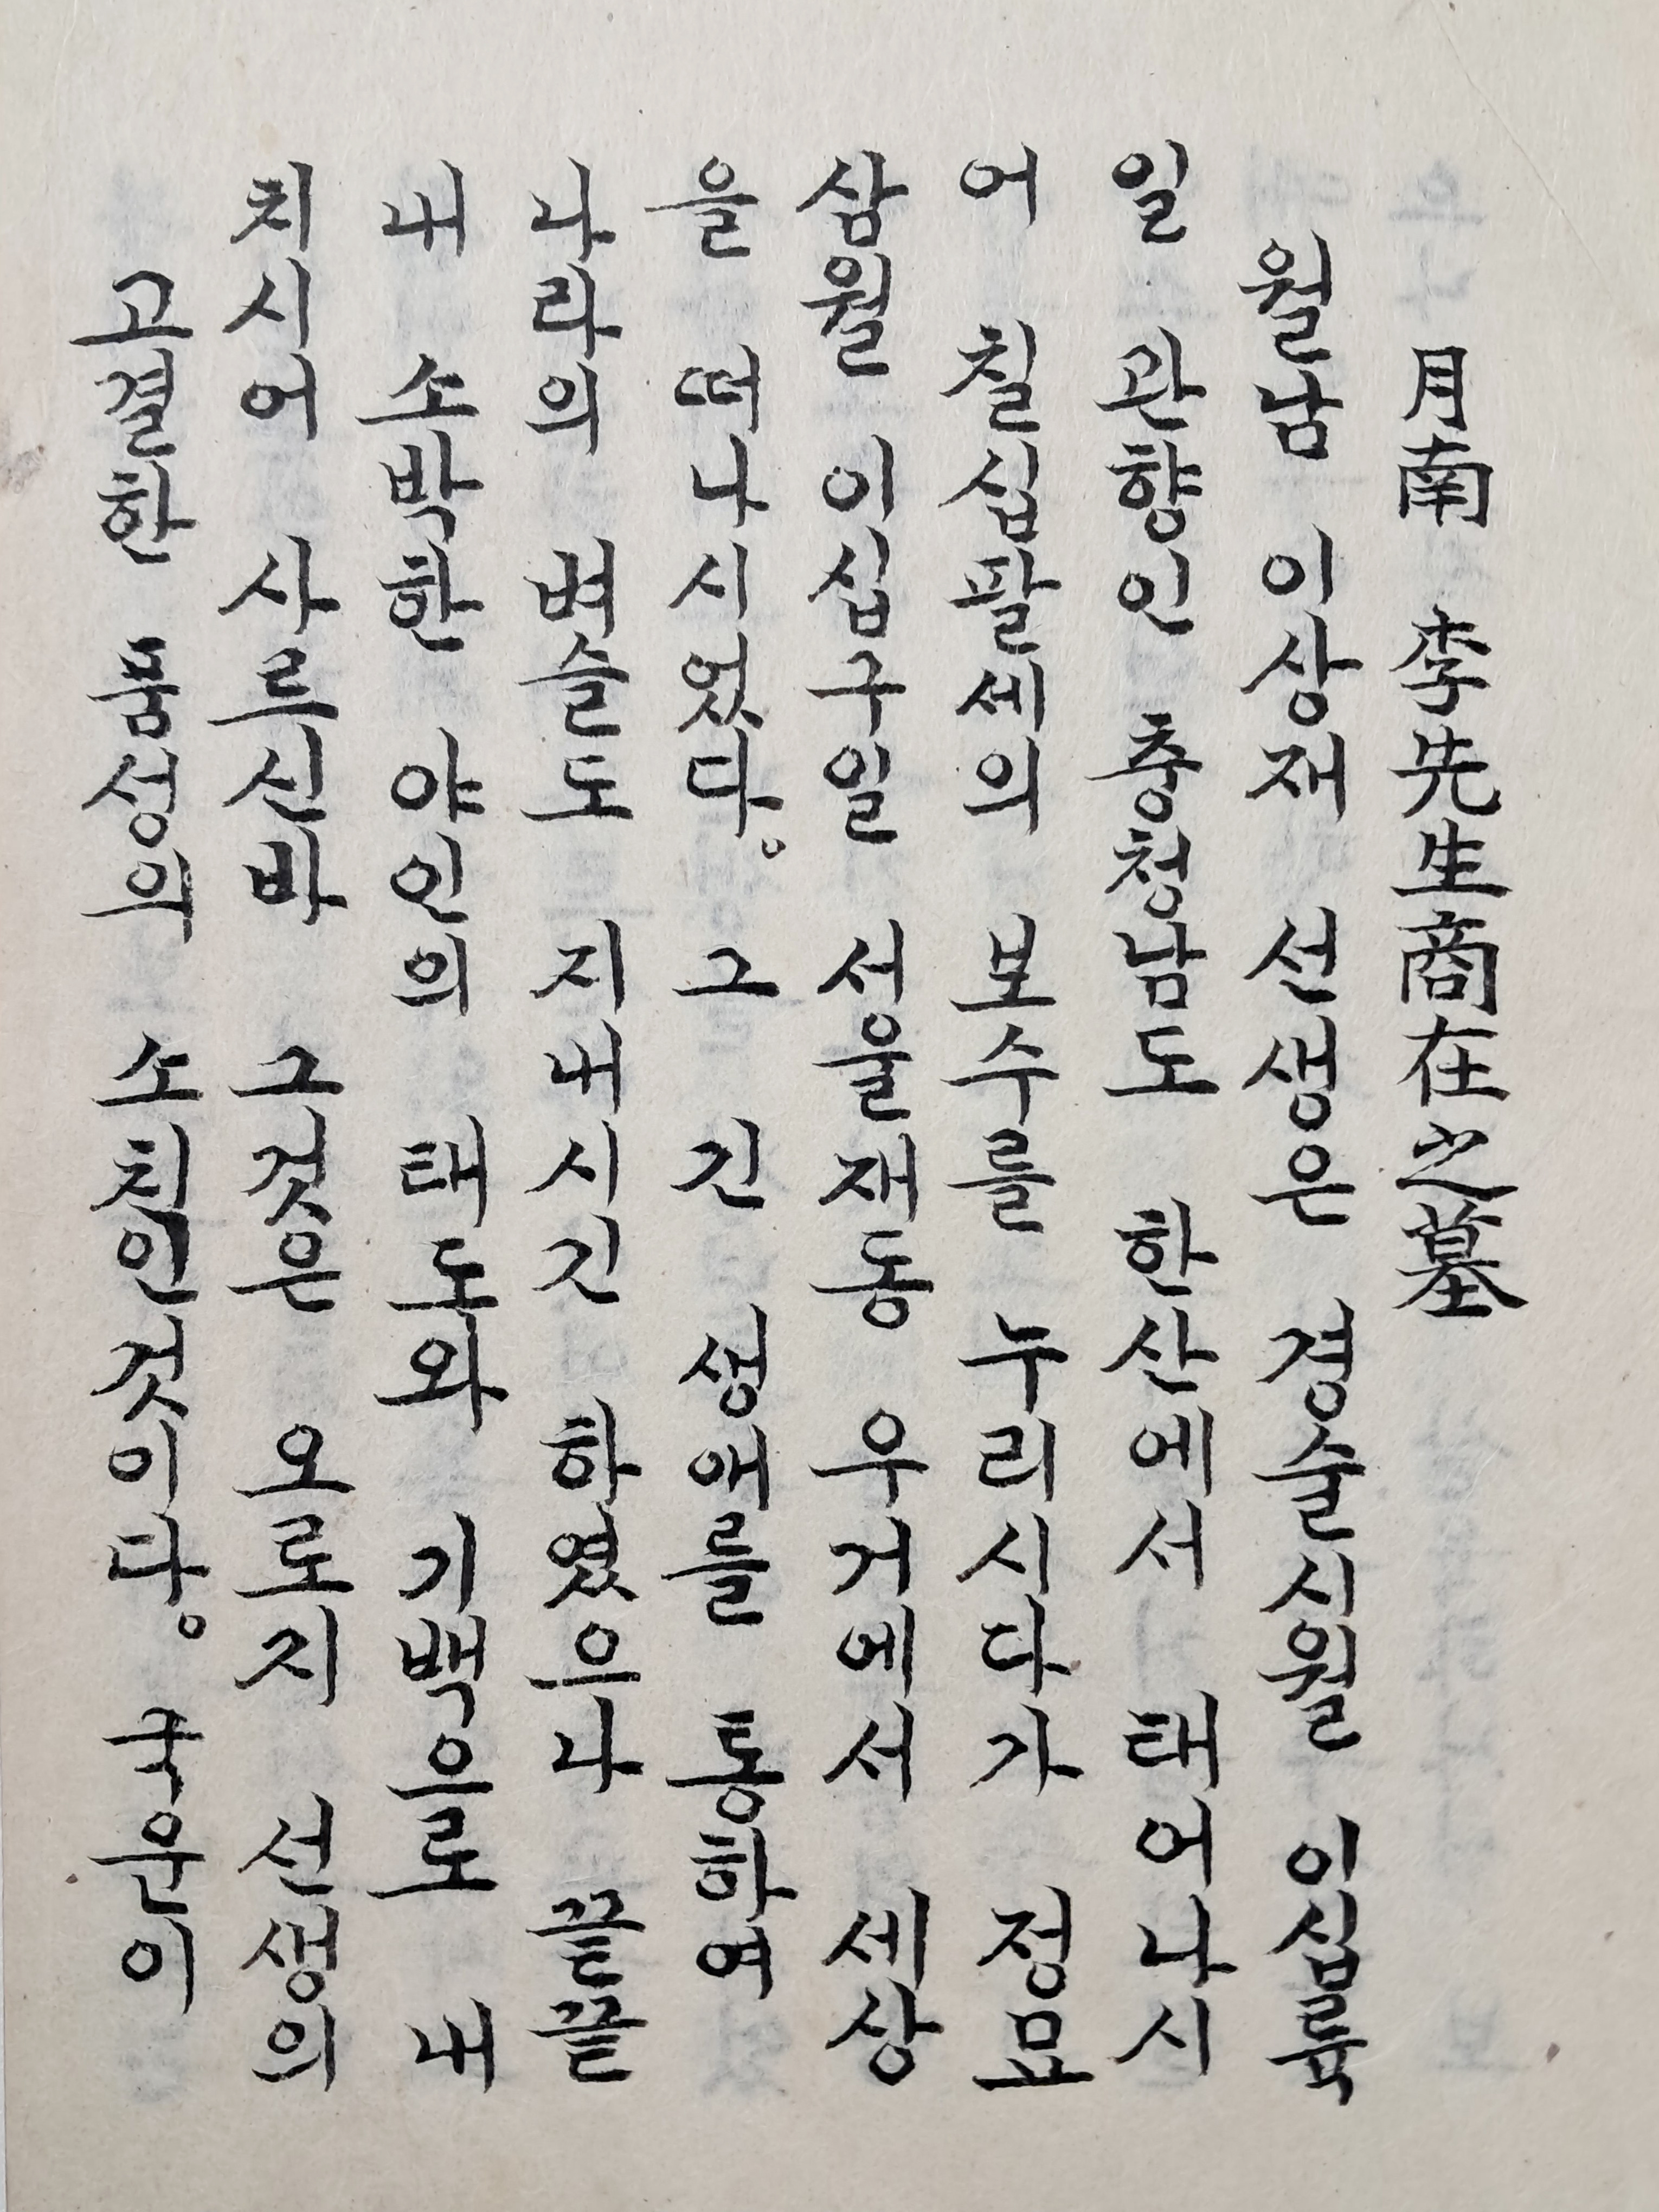 月南 李先生商在之墓
월남 이상재 선생은 경술시월 이십륙
일 관향인 충청남도 한산에서 태어나시
어 칠십팔세의 보수를 누리시다가 정묘
삼월 이십구일 서울재동 우거에서 세상
을 떠나시었다。 그 긴 생애를 통하여
나라의 벼슬도 지내시긴 하였으나 끝끝
내 소박한 야인의 태도와 기백으로 내
치시어 사르신바 그것은 오로지 선생의
고결한 품성의 소치인것이다。 국운이